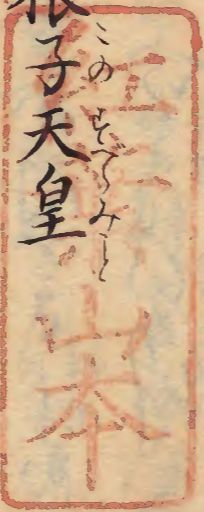 根子天皇
このすべらみこと
山本